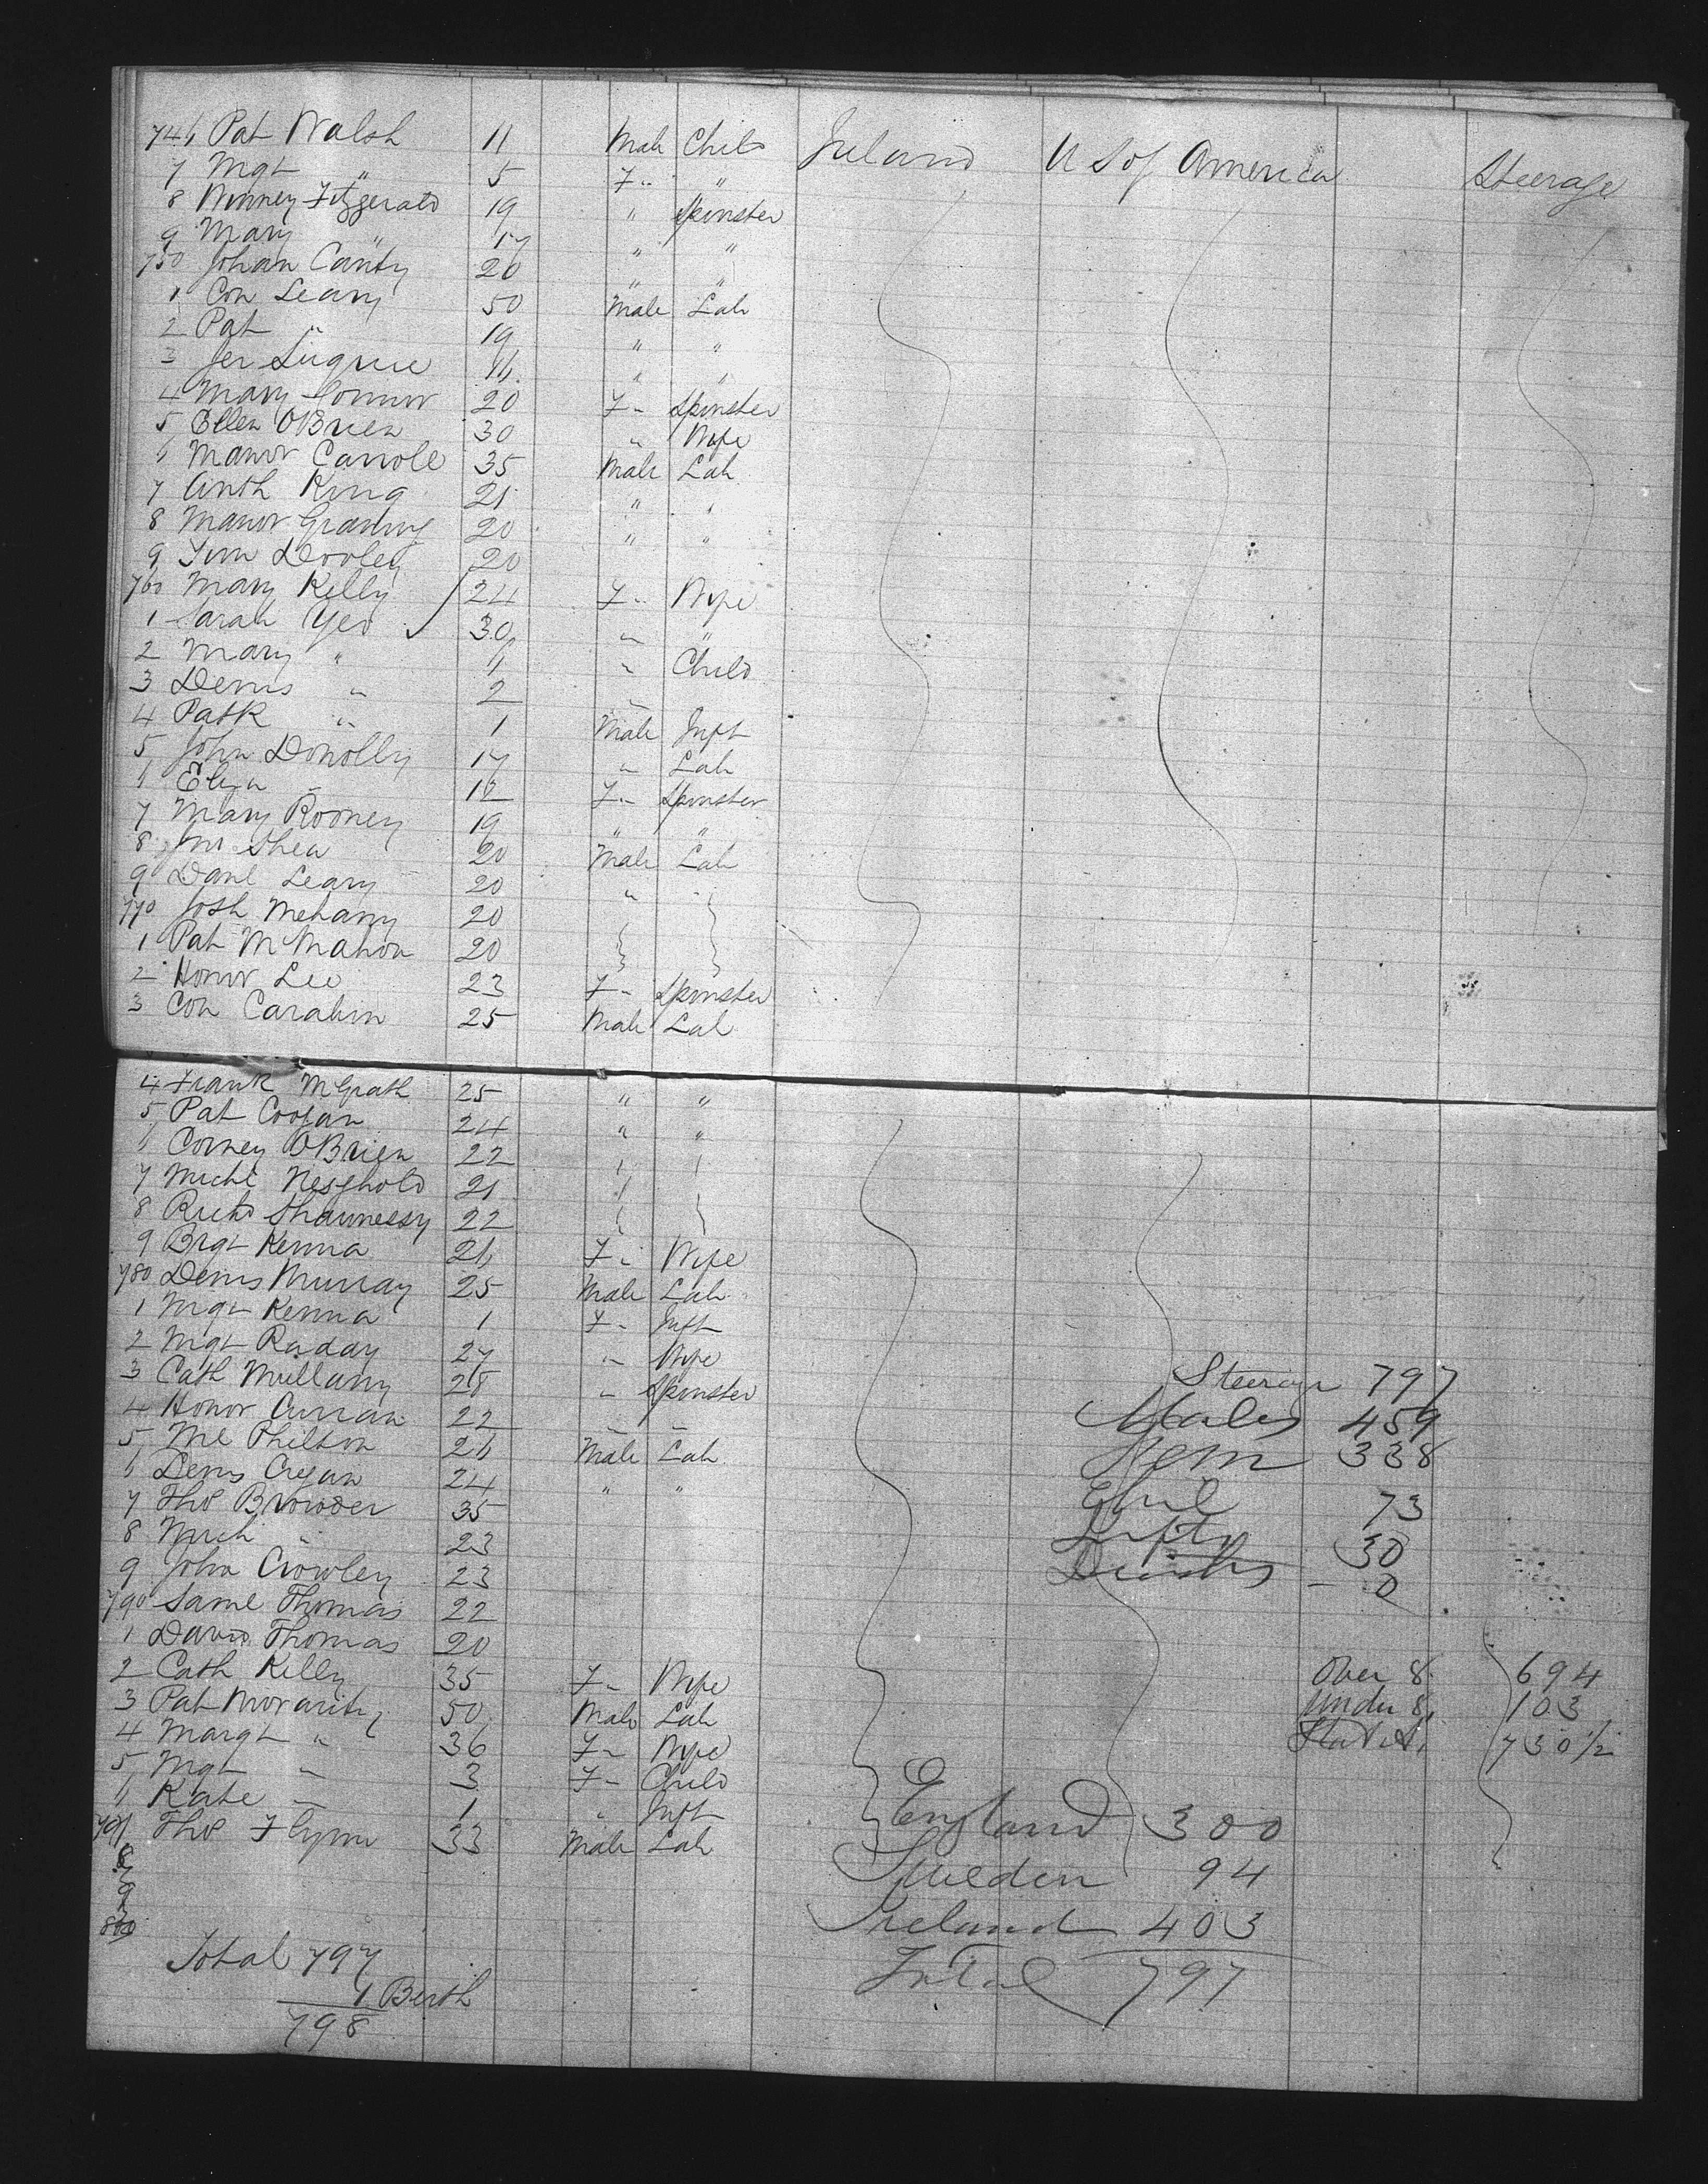 746 Pat Walsh 11 Male Child Ireland U S of America Steerage
7 Mgt " 5 F " "
8 Winney Fitzgerald 19 " Spinster
9 Mary " 17 " "
750 Johan Canty 20 " "
1 Con Leary 50 Male Lab
2 Pat " 19 " "
3 Jer 16 " "
4 Mary Connor 20 F " Spinster
5 Ellen OBrien 30 " Wife
6 Carrole 35 Male Lab
7 Anth King 21 " "
8 20 " "
9 Tim Dooley 20
760 Mary Kelly 24 F " Wife
1 Sarah Yeo 30 " "
2 Mary " 11 " Child
3 Denis " 2 "
4 Patk " 1 Male Inft
5 John Donolly 17 " Lab
6 Eliza " 18 F " Spinster
7 Mary Rooney 19 " "
8 Jno Shea 20 Male Lab
9 Danl Leary 20 "
770 Josh Mehany 20
1 Pat McMahon 20
2 Honor Lee 23 F " Spinster
3 Con Carabin 25 Male Lab
4 Frank McGrath 25 " "
5 Pat Coogan 24 " "
6 Corney OBrien 22
7 Michl 21
8 Richd Shaunessy 22
9 Brgt Kenna 26 F " Wife
780 Denis Murray 25 Male Lab
1 Mgt Kenna 1 F " Inft
2 Mgt Raday 27 " Wife
3 Cath Mullany 28 " Spinster
4 Honor Curran 22 " "
5 Ml Philbin 26 Male Lab
6 Denis Cregan 24 " "
7 Thos Browder 35
8 Mich " 23
9 John Crowley 23
790 Saml Thomas 22
1 David Thomas 20
2 Cath Kelly 35 F " Wife
3 Pat Moriarity 50 Male Lab
4 Margt " 36 F " Wife
5 Mgt " 3 F " Child
6 Kate " 1 " Inft
797 Thos Flynn 33 Male Lab
8
9
800
Total 797
1 Berth
798
Steerage 797
Males 459
Fem 338
Chil 73
Infts 30
Deaths - 0
Over 8 694
Under 8 103
Stat A 730 1/2
England 300
Sweden 94
Ireland 403
Total 797